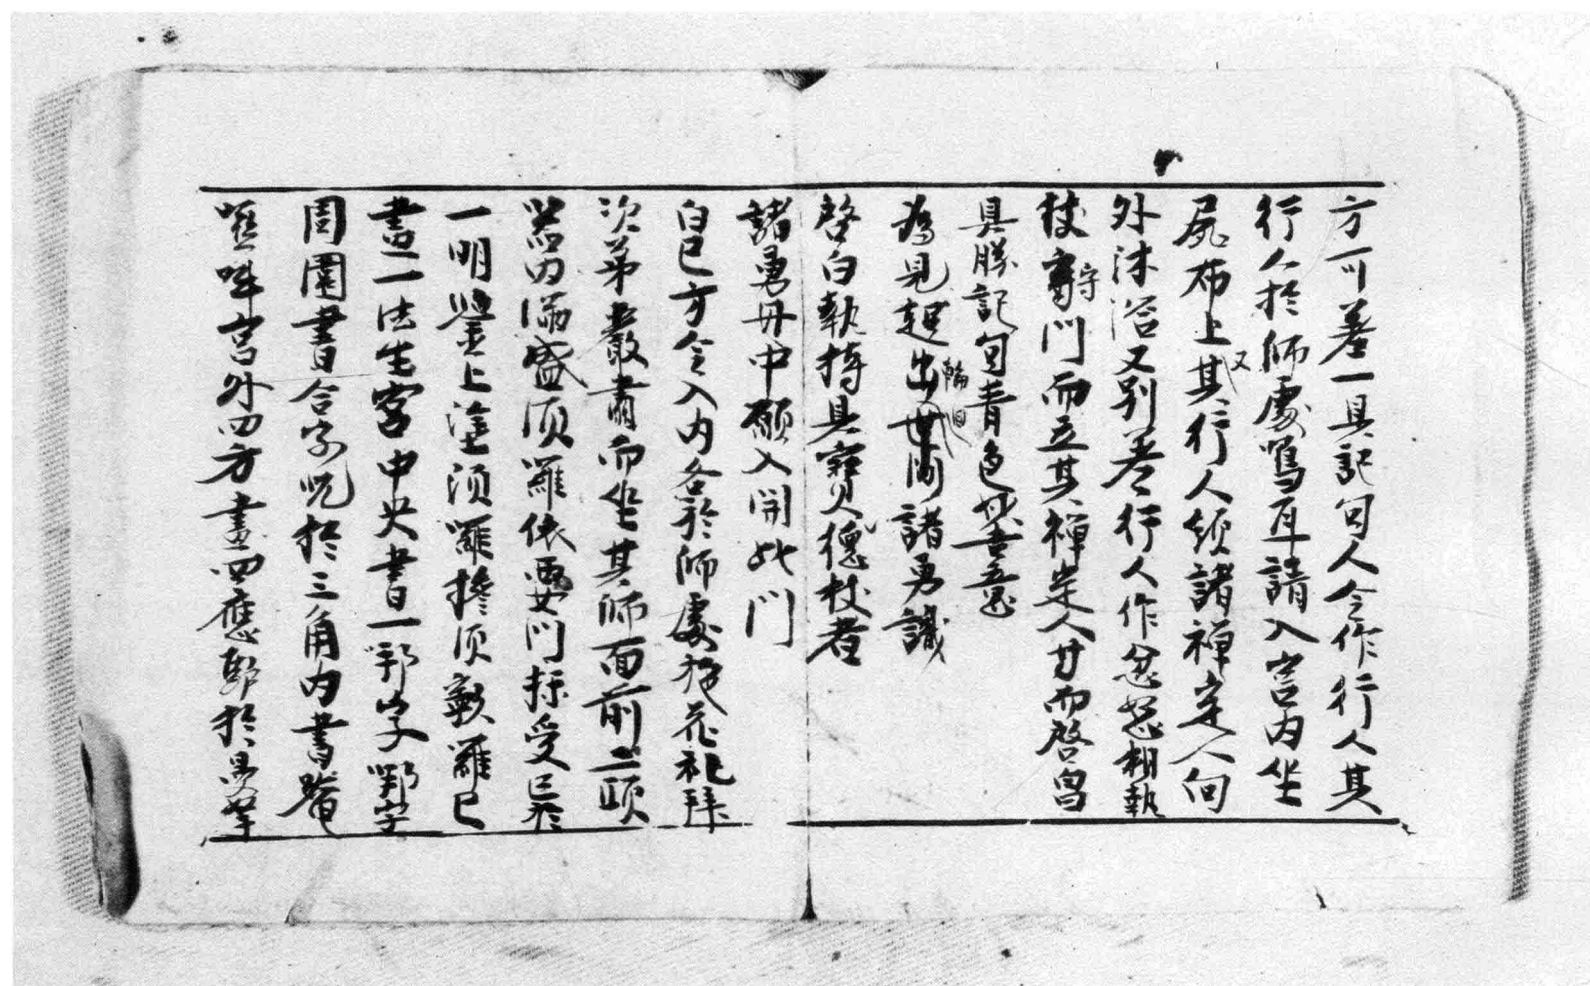 方可差一具記句人令作行人其
行人於師處鳴耳請入宮内坐
屍布上其又行人須諸禪定人向
外沐浴又別差行人作忿怒相執
杖守門而立其禪定人廿而啓曰
具勝記句青色
為見超出輪迴諸勇識
啓白執持具寶德杖者
諸勇母中願入開此門
白已方令入内各於師處施花礼拜
次第嚴肅而坐其師面前二頭
器内滿盛須羅依要門採受已於
一明鑒上塗須羅攙須敦羅已
畫一法生宮中央書一字
周圍書合字呪於三角内書
宮外四方畫四應